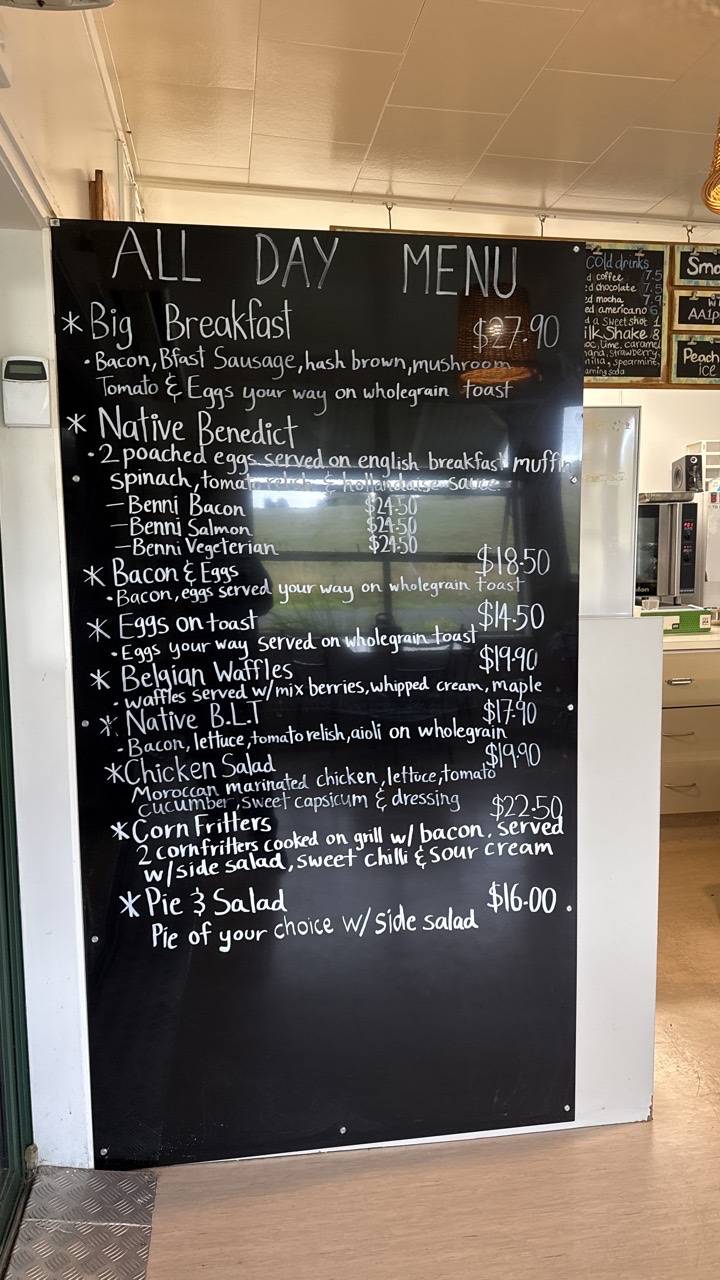 ALL DAY MENU
* Big Breakfast $27.90
• Bacon, Bfast Sausage, hash brown, mushroom
Tomato & Eggs your way on wholegrain toast
* Native Benedict
• 2 poached eggs served on english breakfast muffin
spinach, tomato relish & hollandaise sauce.
– Benni Bacon $24.50
– Benni Salmon $24.50
– Benni Vegeterian $24.50
* Bacon & Eggs $18.50
• Bacon, eggs served your way on wholegrain toast
* Eggs on toast $14.50
• Eggs your way served on wholegrain toast
* Belgian Waffles $19.90
• waffles served w/mix berries, whipped cream, maple
* Native B.L.T $17.90
- Bacon, lettuce, tomato relish, aioli on wholegrain
* Chicken Salad $19.90
Moroccan marinated chicken, lettuce, tomato
cucumber, sweet capsicum & dressing
* Corn Fritters $22.50
2 cornfritters cooked on grill w/ bacon. served
w/side salad, sweet chilli & sour cream
* Pie & Salad $16.00
Pie of your choice w/ side salad
Cold drinks
coffee 7.5
chocolate 7.5
mocha 7.9
americano 6
a Sweetshot
ilk Shake 8
oc, Lime, caramel
strawberry,
nilla, spearmint,
aming soda
Smo
AA1p
Peach
ICE